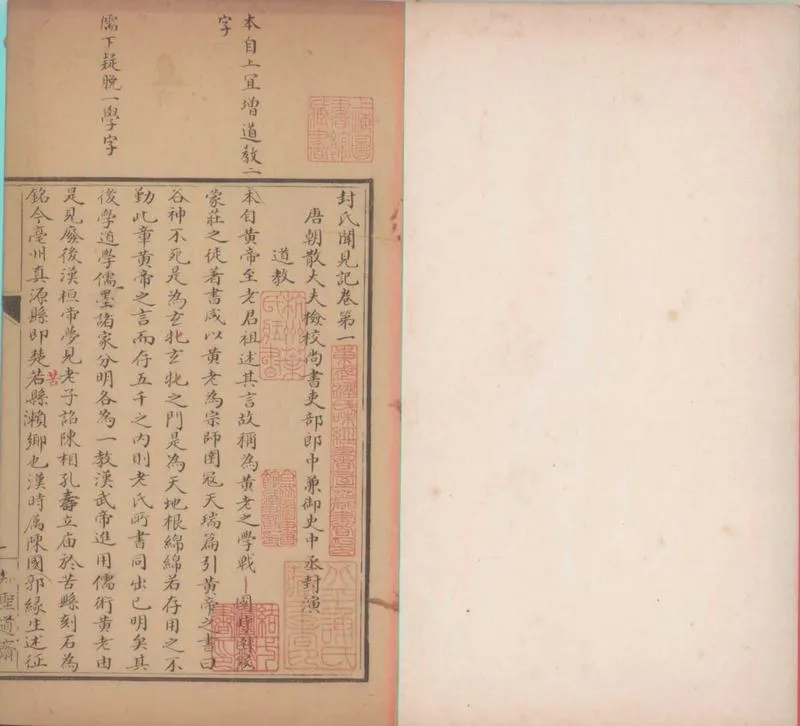 本自上宜增道教二
字
儒下疑脱一學字
上海圖書館藏書
封氏聞見記卷第一
唐朝散大夫檢校尚書吏部郎中兼御史中丞封演
道教
本自黄帝至老君祖述其言故稱為黄老之學戰國
蒙莊之徒著書咸以黄老為宗師圉寇天瑞篇引黄帝之書曰
谷神不死是為玄牝玄牝之門是為天地根綿綿若存用之不
勤此章黄帝之言而存五千之内則老氏所書同出已明矣其
後學道學儒墨諸家分明各為一教漢武帝進用儒術黄老由
是見廢後漢桓帝夢見老子詔陳相孔壽立庙於苦縣刻石為
苦
銘今亳州真源縣即楚若縣瀨鄉也漢時属陳國郭緣生述征
杭州葉氏藏書
知聖道齋